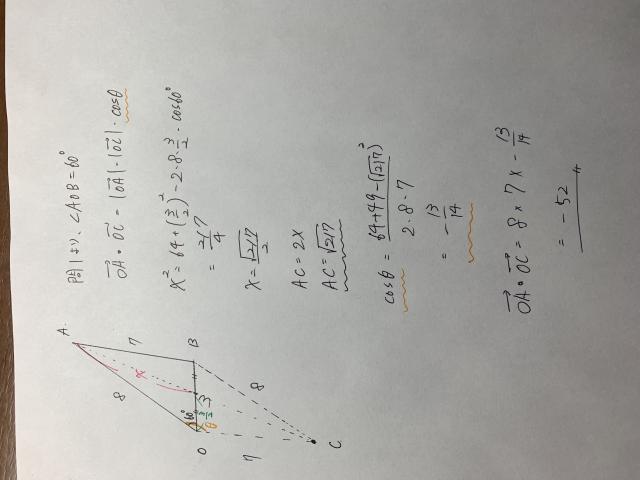 A
7
8
x
B
60°
θ
3/2
3
O
7
8
C
問1より、∠AOB=60°
→OA・→OC = |→OA|・|→OC|・cosθ
x² = 64+(3/2)² - 2・8・3/2・cos60°
= 217/4
x = √217/2
AC = 2x
AC = √217
cosθ = 64+49-(√217)²/2・8・7
= -13/14
→OA・→OC = 8×7×-13/14
= -52